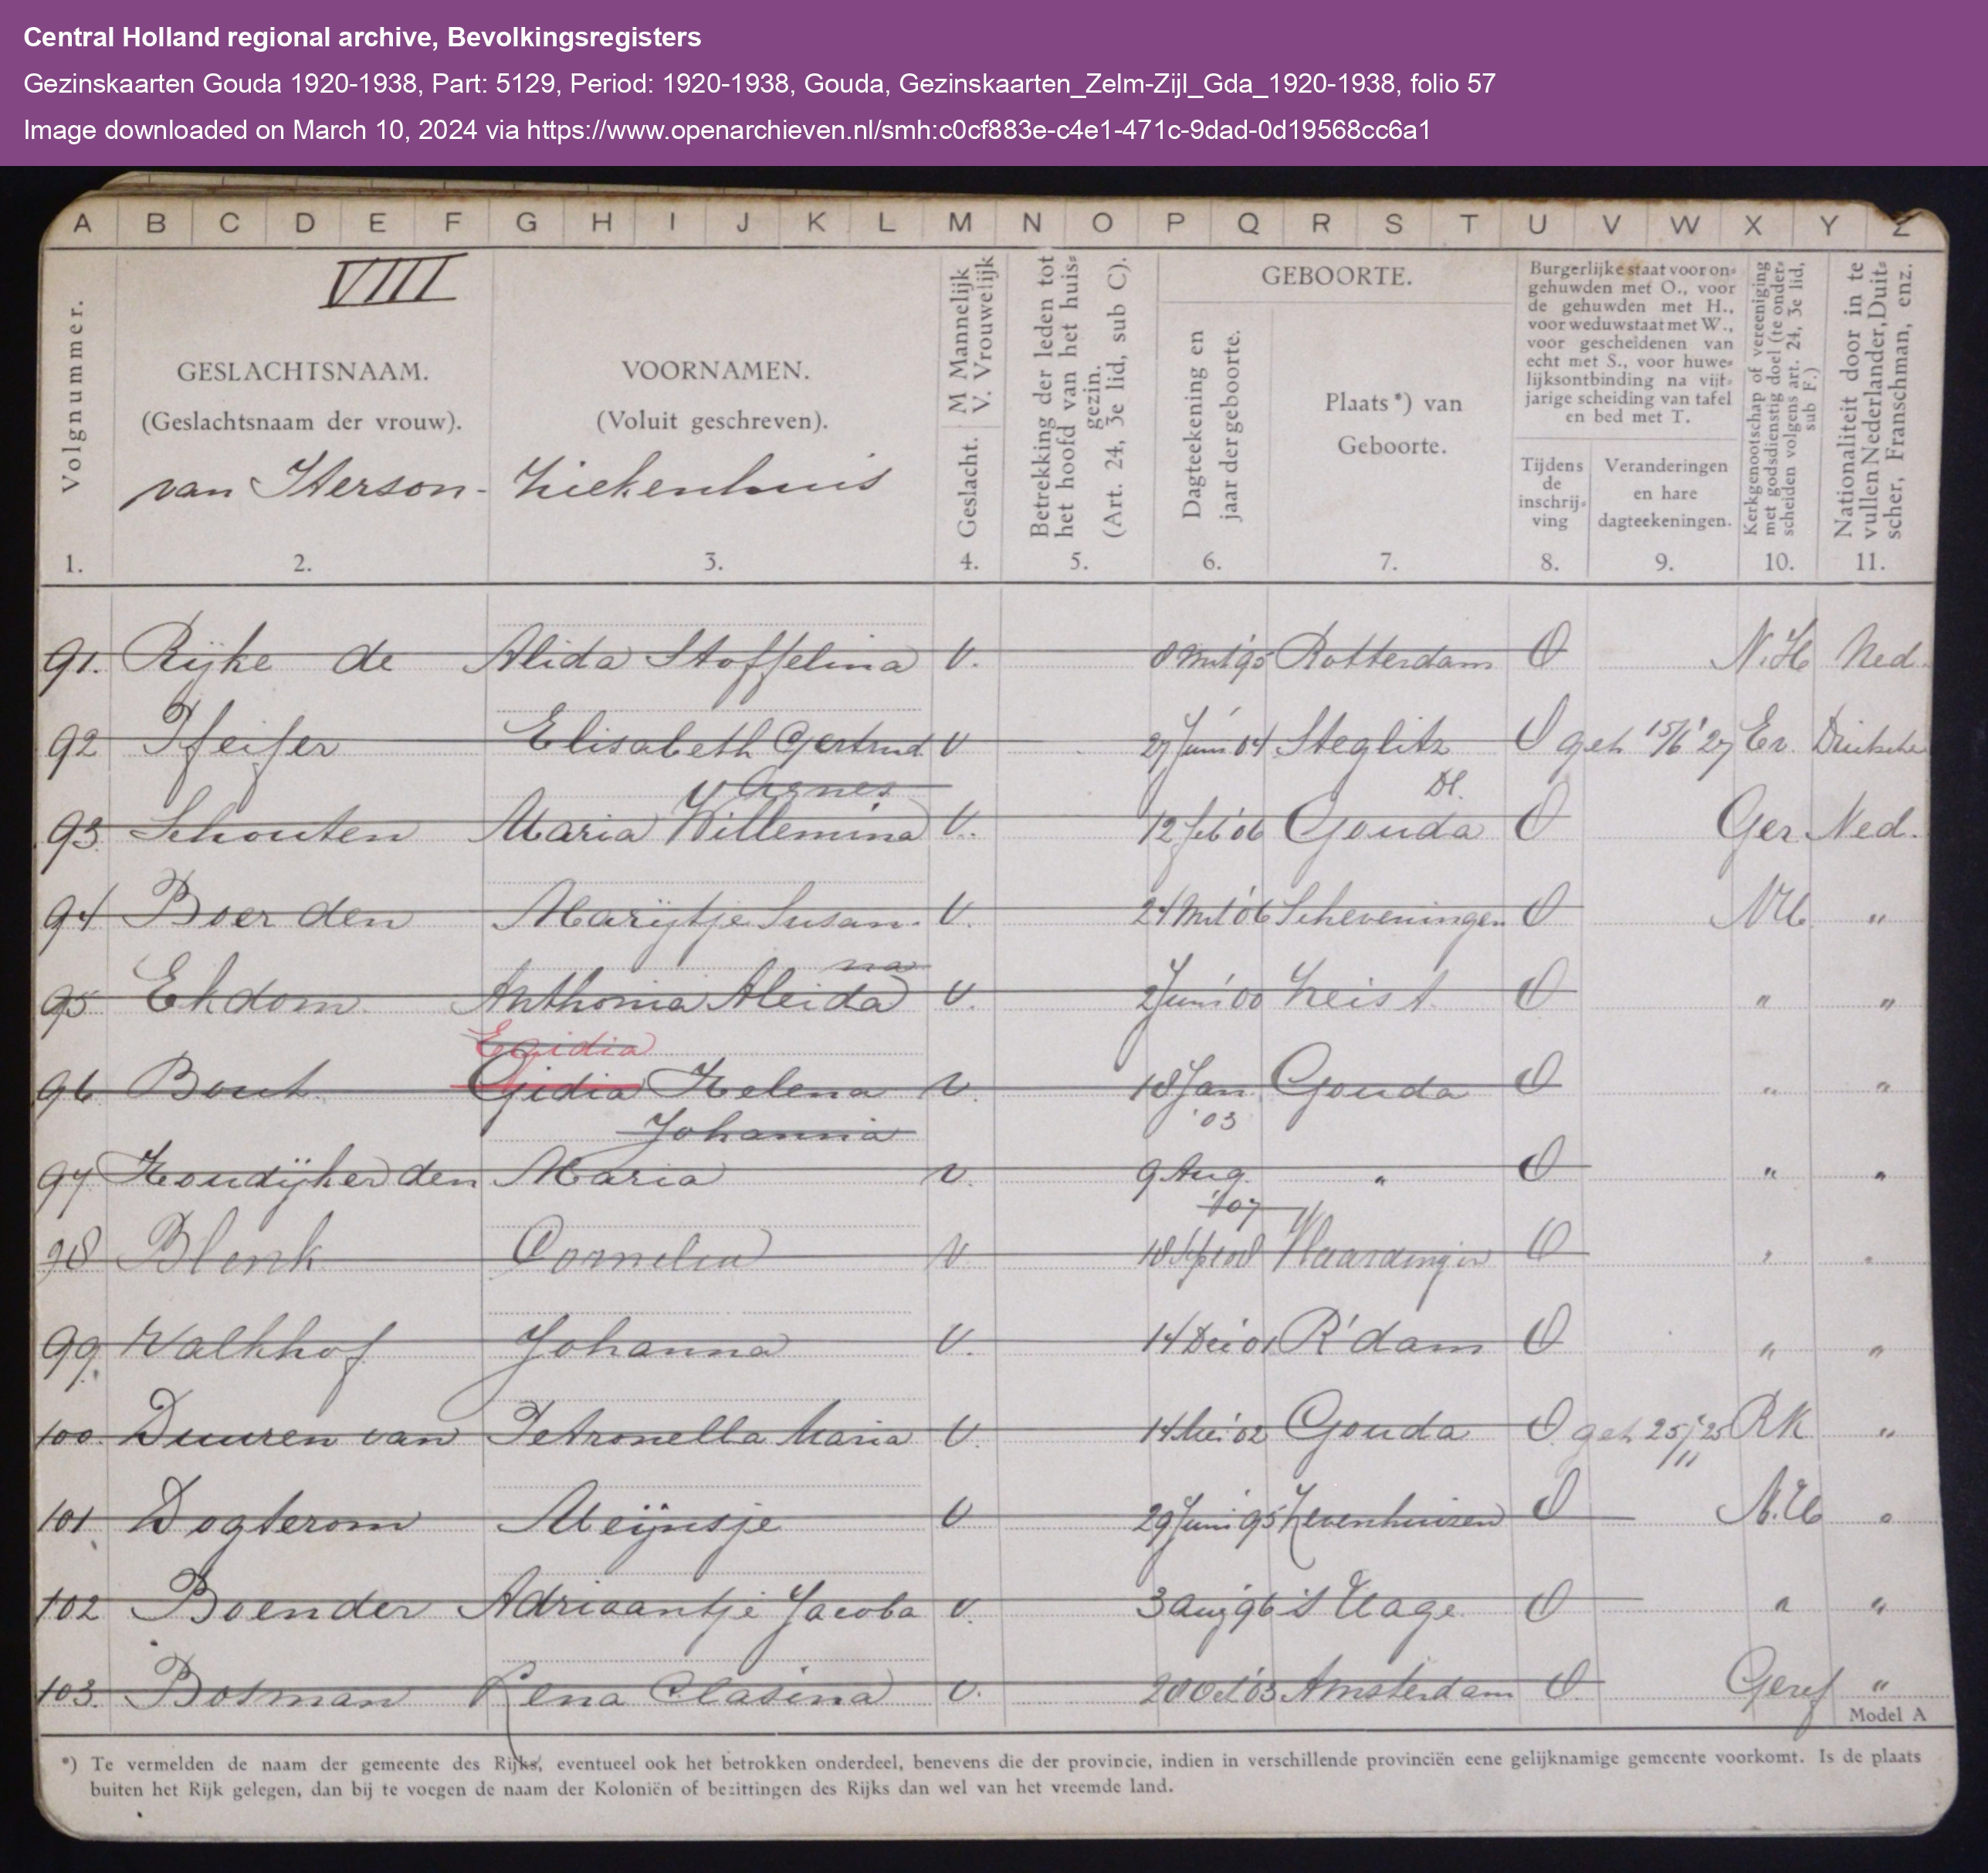 Central Holland regional archive, Bevolkingsregisters
Gezinskaarten Gouda 1920-1938, Part: 5129, Period: 1920-1938, Gouda, Gezinskaarten_Zelm-Zijl_Gda_1920-1938, folio 57
Image downloaded on March 10, 2024 via https://www.openarchieven.nl/smh:c0cf883e-c4e1-471c-9dad-0d19568cc6a1
A B C D E F G H I J K L M N O P Q R S T U V W X Y Z
VIII
Volgnummer.
GESLACHTSNAAM.
(Geslachtsnaam der vrouw).
VOORNAMEN.
(Voluit geschreven).
van Iterson - Ziekenhuis
M Mannelijk
V. Vrouwelijk
Geslacht.
Betrekking der leden tot
het hoofd van het huis=
gezin.
(Art. 24, 3e lid, sub C).
GEBOORTE.
Dagteekening en
jaar der geboorte.
Plaats *) van
Geboorte.
Burgerlijke staat voor on=
gehuwden met O., voor
de gehuwden met H.,
voor weduwstaat met W.,
voor gescheidenen van
echt met S., voor huwe=
lijksontbinding na vijf=
jarige scheiding van tafel
en bed met T.
Tijdens
de
inschrij=
ving
Veranderingen
en hare
dagteekeningen.
Kerkgenootschap of vereeniging
met godsdienstig doel (te onder=
scheiden volgens art. 24, 3e lid,
sub F.)
Nationaliteit door in te
vullen Nederlander, Duit=
scher, Franschman, enz.
1. 2. 3. 4. 5. 6. 7. 8. 9. 10. 11.
91. Rijke de Alida Stoffelina V. 8 Mrt '95 Rotterdam O N.H Ned.
92 Pfeifer Elisabeth Gertrud V 27 Juni '04 Steglitz O geh 15/6 '27 Ev. Duitsche
Agnes Dl.
93. Schouten Maria Willemina V. 12 Feb '06 Gouda O Ger Ned.
94 Boer den Marijtje Susan- V. 24 Mrt '06 Scheveningen O NH "
na
95 Ekdom Anthonia Aleida V. 2 Juni '00 Zeist O " "
Egidia
96 Bout Gidia Helena V. 18 Jan Gouda O " "
Johanna '03
97 Houdijker den Maria V. 9 Aug " O " "
'07
98 Blenk Cornelia V. 18 Sept '08 Vlaardingen O " "
99. Valkhof Johanna V. 14 Dec '01 R'dam O " "
100. Duuren van Petronella Maria V. 14 Mei '02 Gouda O geh 25/11 '25 RK "
101 Dogterom Meijnsje V 29 Juni '95 Zevenhuizen O N.H "
102 Boender Adriaantje Jacoba V. 3 Aug '96 's Hage O " "
103. Bosman Lena Clasina V. 20 Oct '03 Amsterdam O. Geref "
Model A
*) Te vermelden de naam der gemeente des Rijks, eventueel ook het betrokken onderdeel, benevens die der provincie, indien in verschillende provinciën eene gelijknamige gemeente voorkomt. Is de plaats
buiten het Rijk gelegen, dan bij te voegen de naam der Koloniën of bezittingen des Rijks dan wel van het vreemde land.